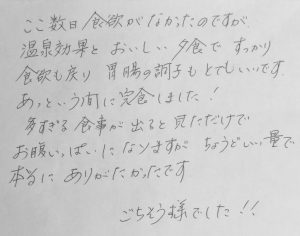 ここ数日食欲がなかったのですが、
温泉効果とおいしい夕食ですっかり
食欲も戻り 胃腸の調子もとてもいいです。
あっという間に完食しました!
多すぎる食事が出ると見ただけで
お腹いっぱいになりますが ちょうどいい量で
本当にありがたかったです
ごちそう様でした!!